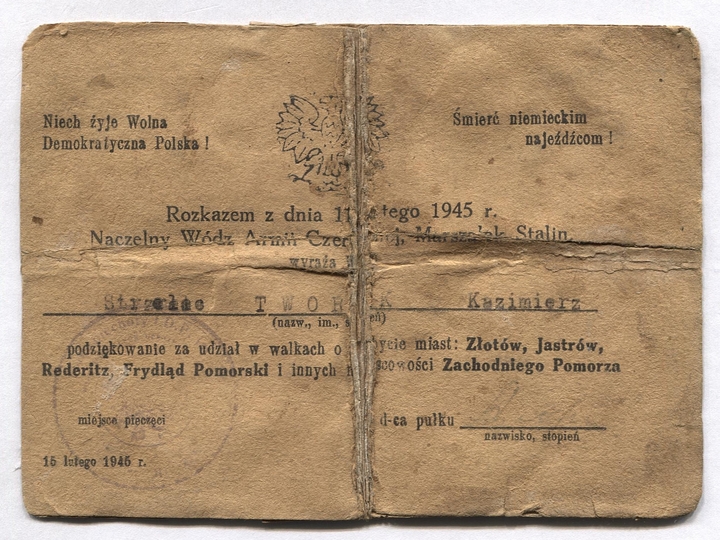 Niech żyje Wolna
Demokratyczna Polska!
Śmierć niemieckim
najeźdźcom!
Rozkazem z dnia 11 lutego 1945 r.
Naczelny Wódz Armii Czerwonej, Marszałek Stalin,
wyraża
Strzelec TWOR K Kazimierz
(nazw., im., stopień)
podziękowanie za udział w walkach o zdobycie miast: Złotów, Jastrów,
Rederitz, Frydląd Pomorski i innych miejscowości Zachodniego Pomorza
miejsce pieczęci
d-ca pułku
nazwisko, stopień
15 lutego 1945 r.